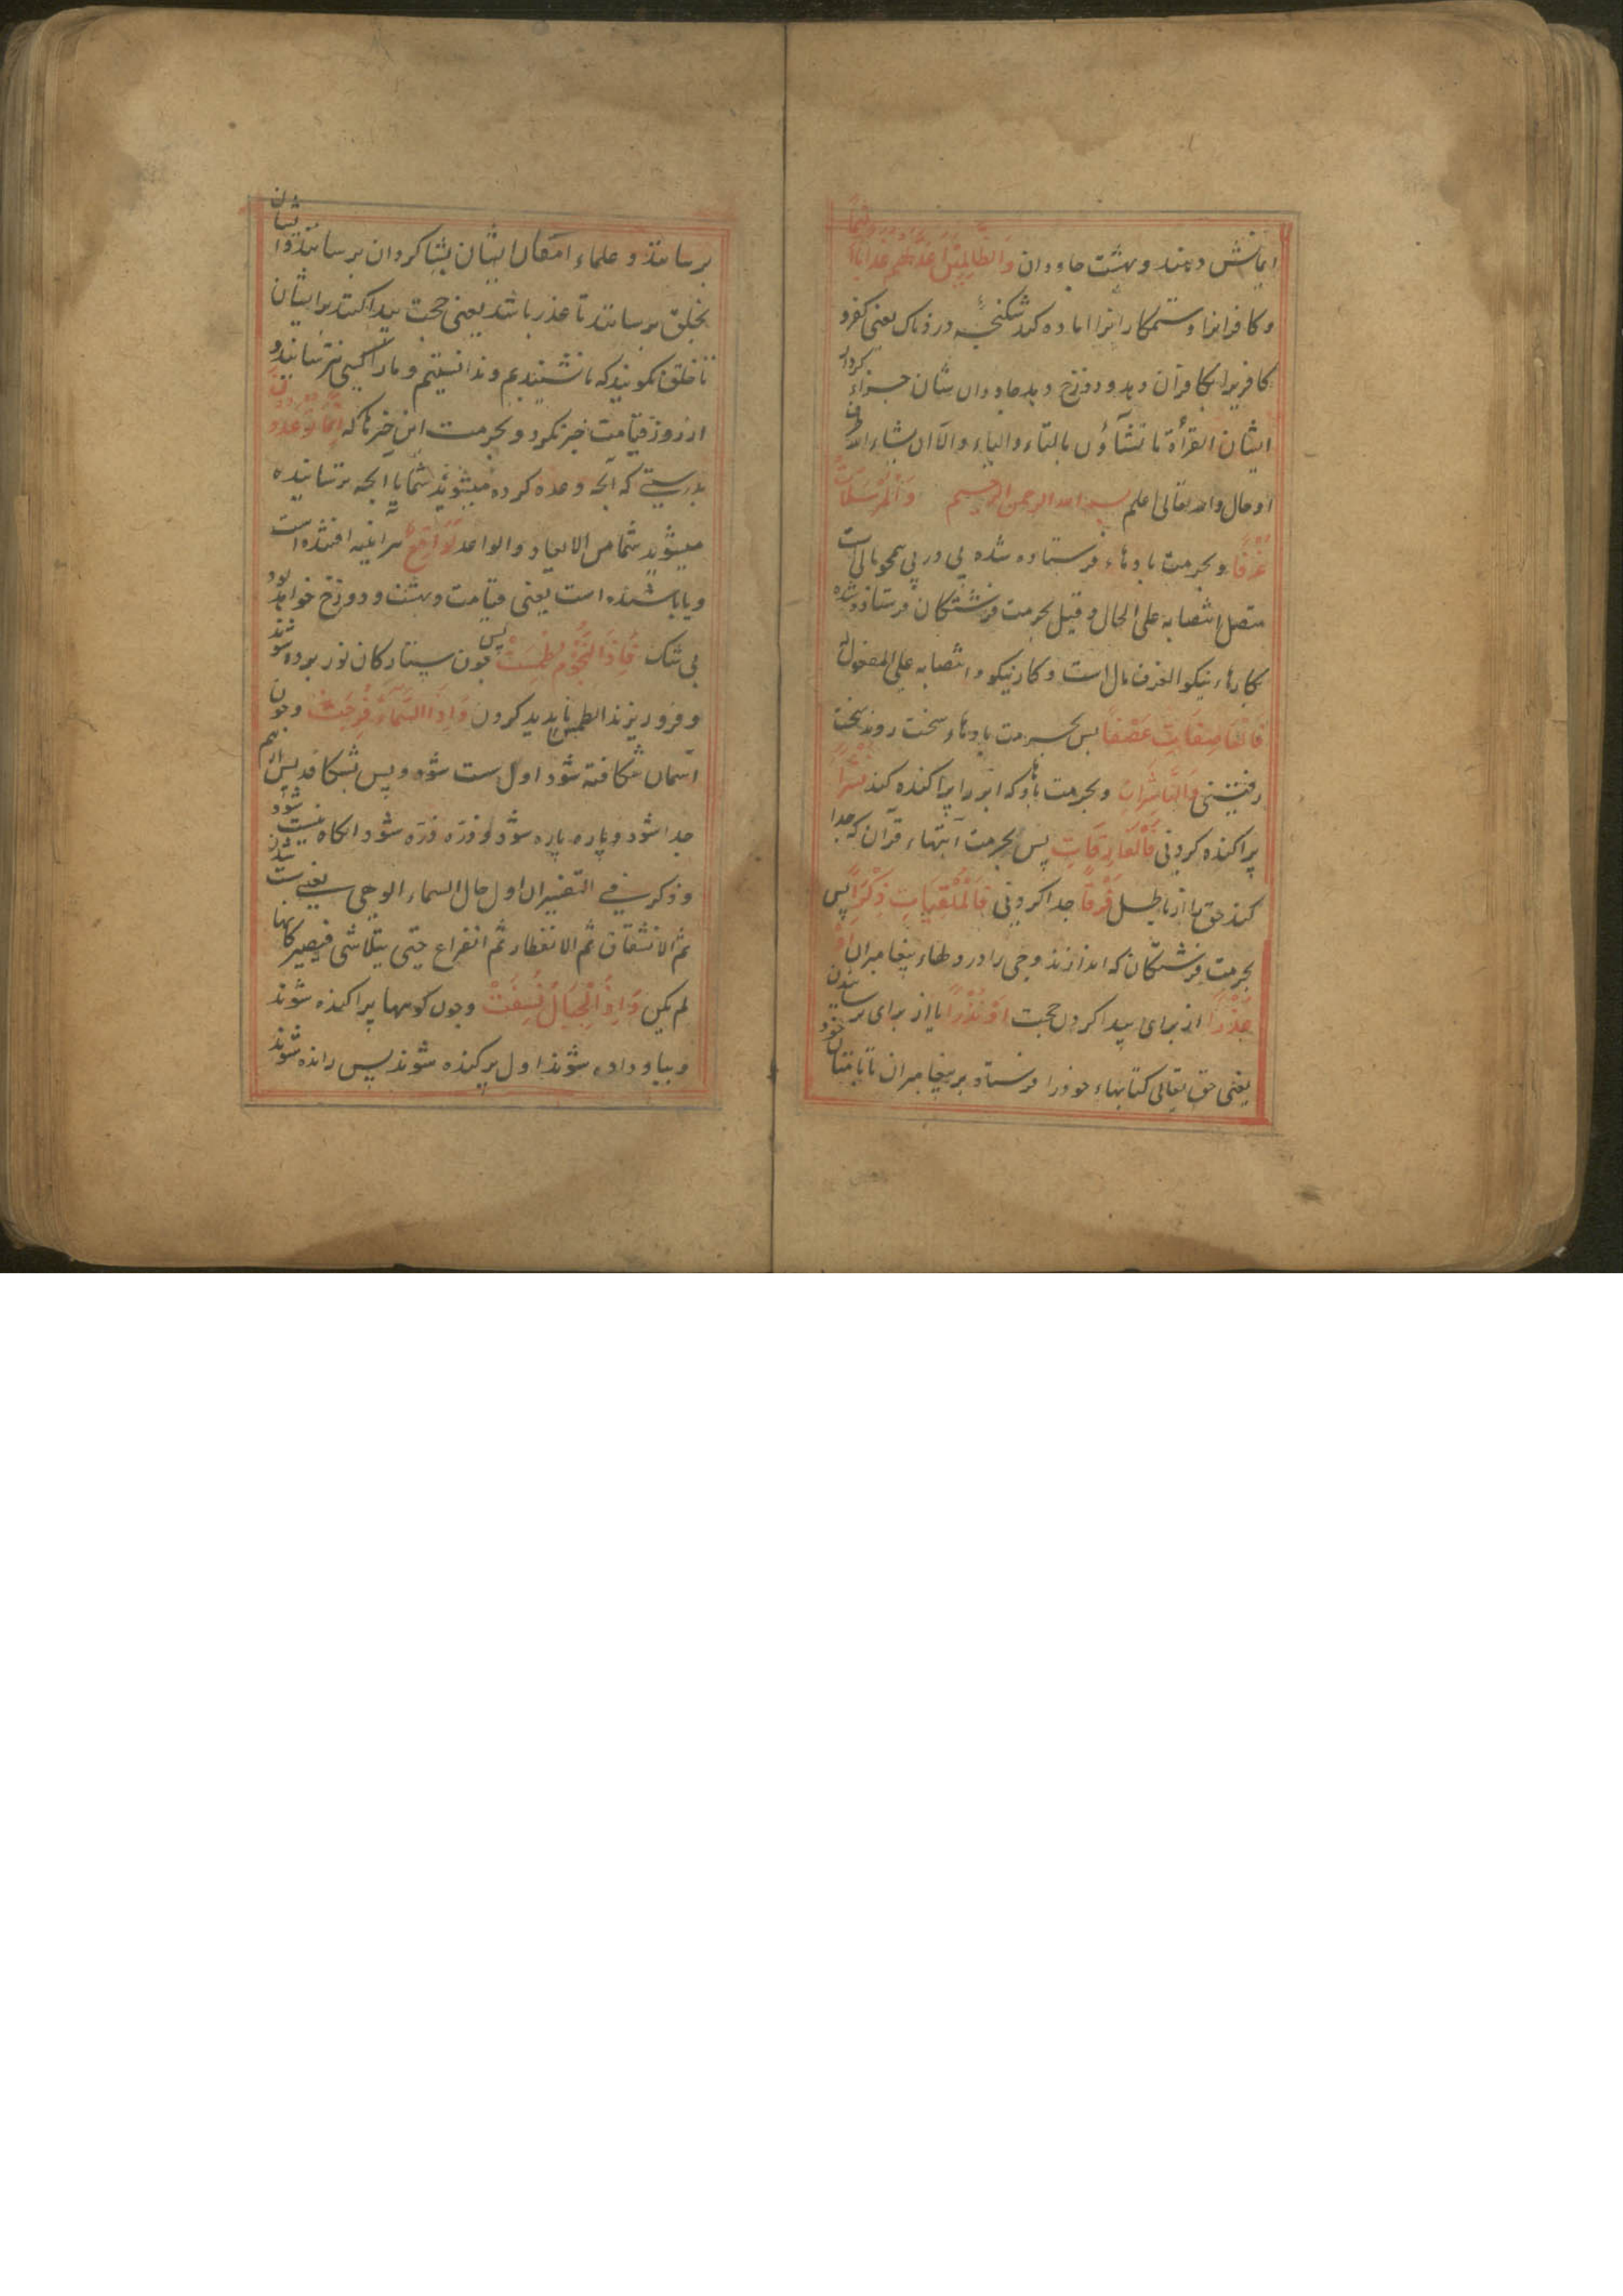 ایمانش دهند و بهشت جاودان وَالظَّالِمِينَ أَعَدَّ لَهُمْ عَذَابًا أَلِيمًا
و کافرانرا و ستمکارانرا اماده کرد شکنجهٔ دردناک یعنی کفر و
کافریرا بکافران دهد و دوزخ دهد جاودان شان جزاء کردار
ایشان القرأة ما تشآؤن بالتاء والیاء والا ان یشاء الله
او حال والله تعالی اعلم بسم الله الرحمن الرحیم وَالْمُرْسَلَاتِ
عُرْفًا و بحرمت بادهاء فرستاده شده پی در پی همچو یال است
متصل انتصابه علی الحال و قیل بحرمت فرشتگان فرستاده شده
بکارهاء نیکو العرف یال است و کار نیکو و انتصابه علی المفعول له
فَالْعَاصِفَاتِ عَصْفًا پس بحرمت بادهاء سخت رونده سخت
رفتنی وَالنَّاشِرَاتِ و بحرمت بادها که ابر را پراکنده کند نَشْرًا
پراکنده کردنی فَالْفَارِقَاتِ پس بحرمت آیتهاء قرآن که جدا
کند حق را از باطل فَرْقًا جدا کردنی فَالْمُلْقِيَاتِ ذِكْرًا پس
بحرمت فرشتگان که اندازند وحی را در دلهاء پیغامبران
عُذْرًا از برای پیدا کردن حجت أَوْ نُذْرًا یا از برای ترسانیدن
یعنی حق تعالی کتابهاء خود را فرستاد بر پیغامبران تا بامتان خود
برسانند و علماء امتان ایشان بشاکردان برسانند و شاکردان
بخلق برسانند تا عذر باشد یعنی حجت پیدا کنند بر ایشان
تا خلق نکویند که ما نشنیدیم و ندانستیم و ما را کسی نترسانید و
از روز قیامت خبر نکرد و بحرمت این خبرها که إِنَّمَا تُوعَدُونَ
بدرستی که آنچه وعده کرده میشوید شما یا آنچه ترسانیده
میشوید شما من الایعاد والواعد لَوَاقِعٌ هر آینه افتنده است
و یا باشنده است یعنی قیامت و بهشت و دوزخ خواهد بود
بی شک فَإِذَا النُّجُومُ طُمِسَتْ پس چون ستارکان نور برده شوند
و فرو ریزند الطمس ناپدید کردن وَإِذَا السَّمَاءُ فُرِجَتْ و چون
آسمان شکافته شود اول سست شود و پس بشکافد پس از هم
جدا شود و پاره پاره شود و ذره ذره شود انکاه نیست شود
و ذکر فی التفسیر ان اول حال السماء الوهی یعنی سست شدن
ثم الانشقاق ثم الانفطار ثم انفراج حتی یتلاشی فیصیر کانها
لم یکن وَإِذَا الْجِبَالُ نُسِفَتْ و چون کوهها پراکنده شوند
و بباد داده شوند اول بر کنده شوند پس رانده شوند